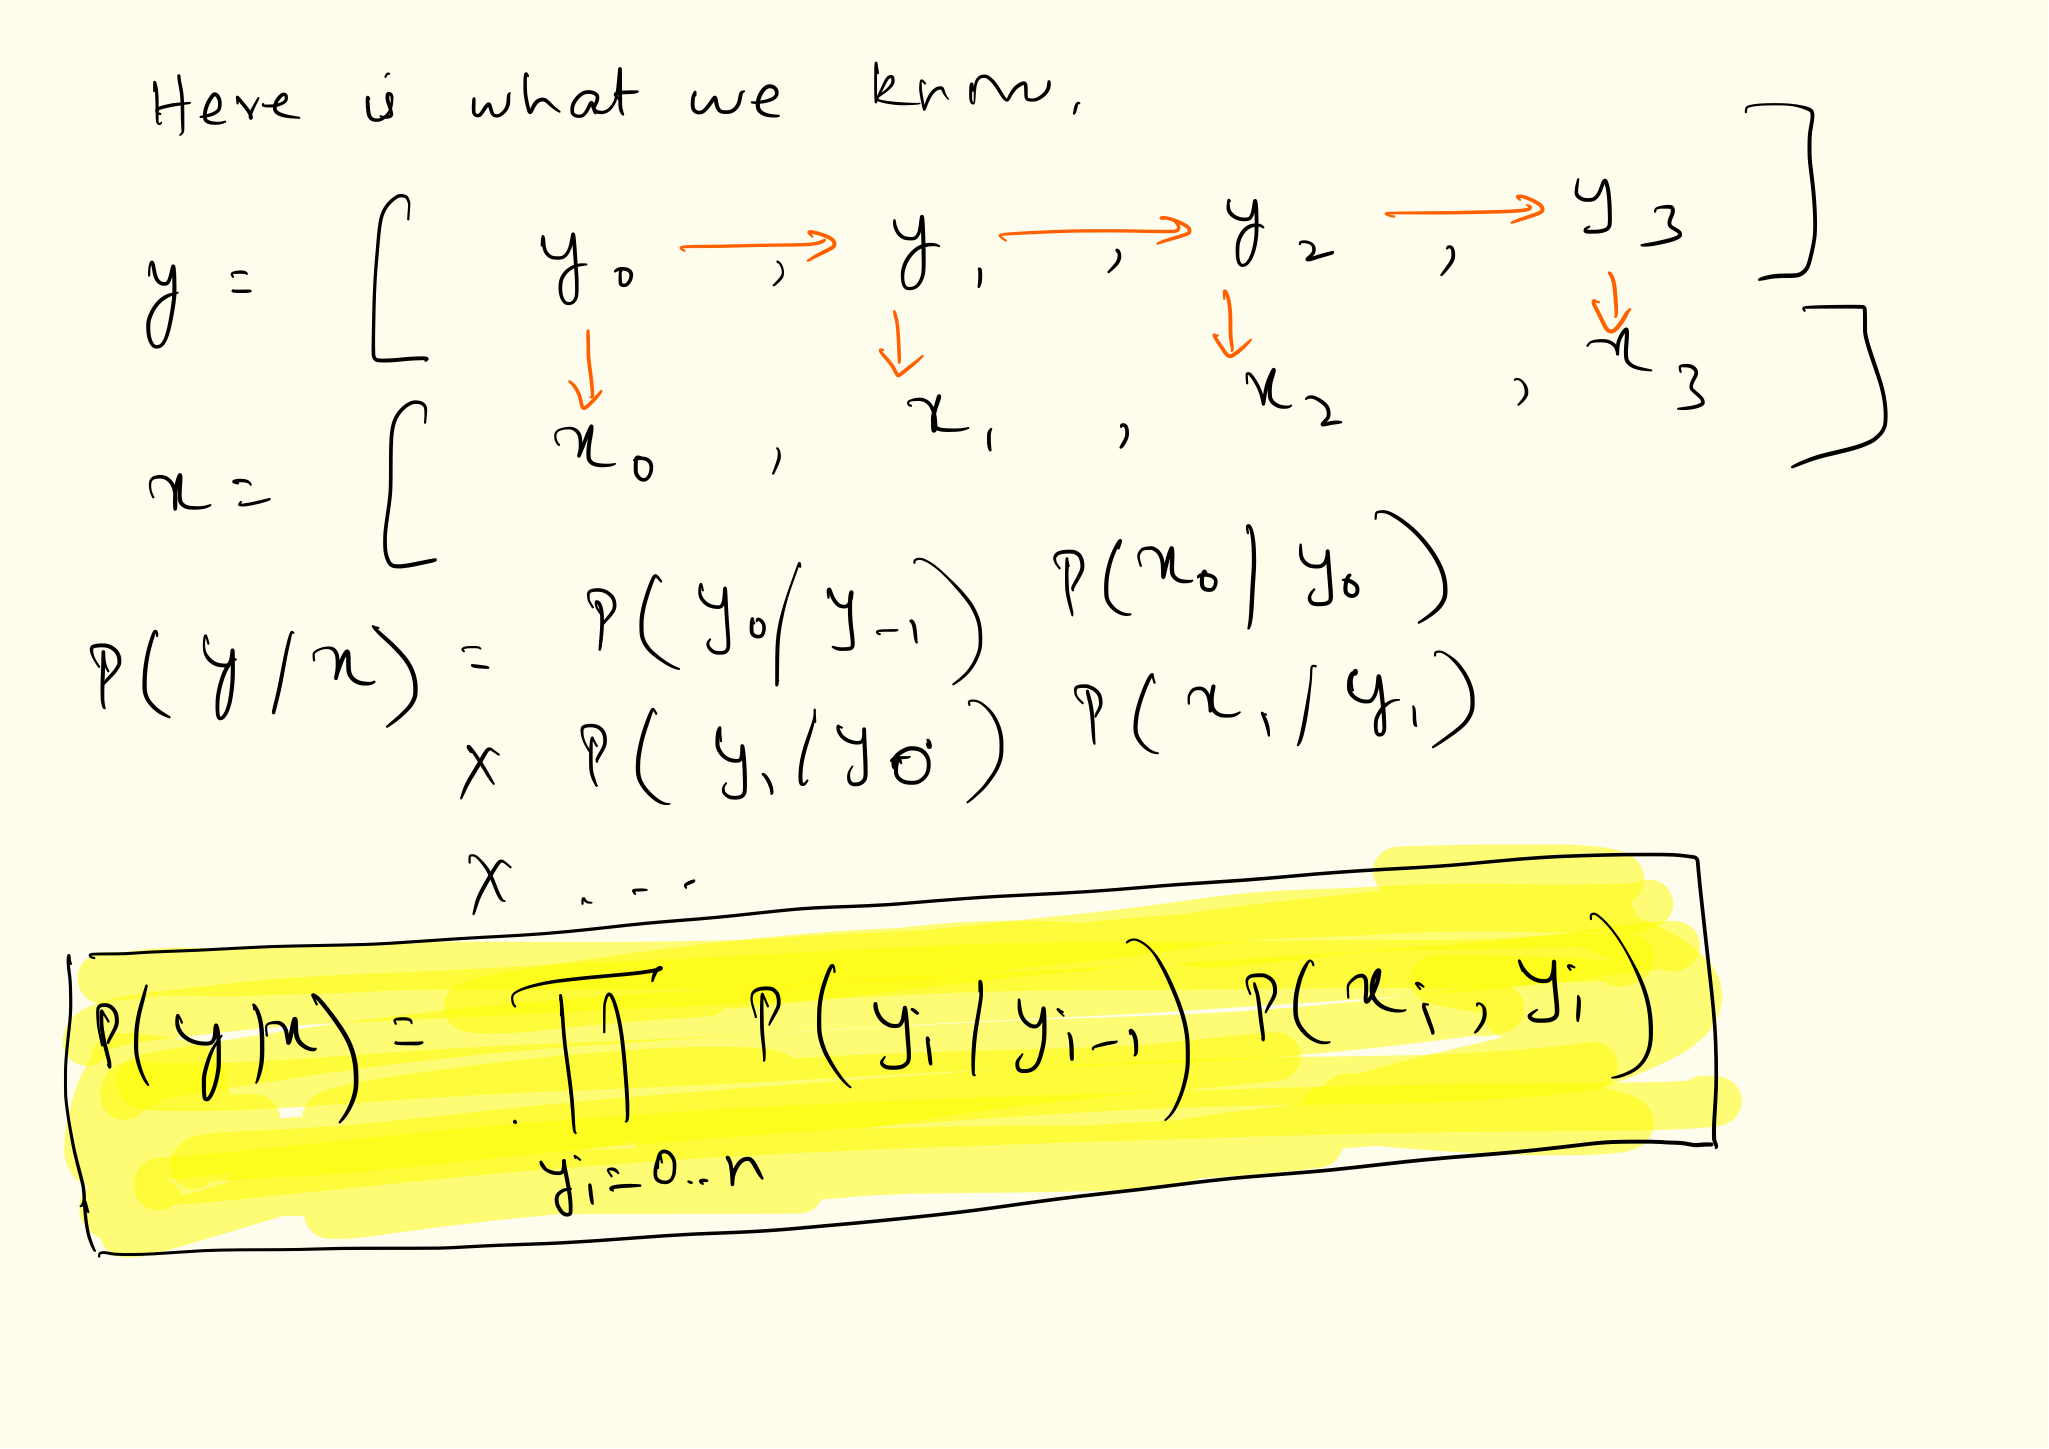 Here is what we know.
y = [ y₀ → , y₁ → , y₂ → , y₃ ]
↓ ↓ ↓ ↓
x = [ x₀ , x₁ , x₂ , x₃ ]
P(y/x) = P(y₀/y₋₁) P(x₀|y₀)
x P(y₁/y₀) P(x₁/y₁)
x . . .
P(y|x) = ∏ P(yᵢ|yᵢ₋₁) P(xᵢ, yᵢ)
yᵢ=0..n